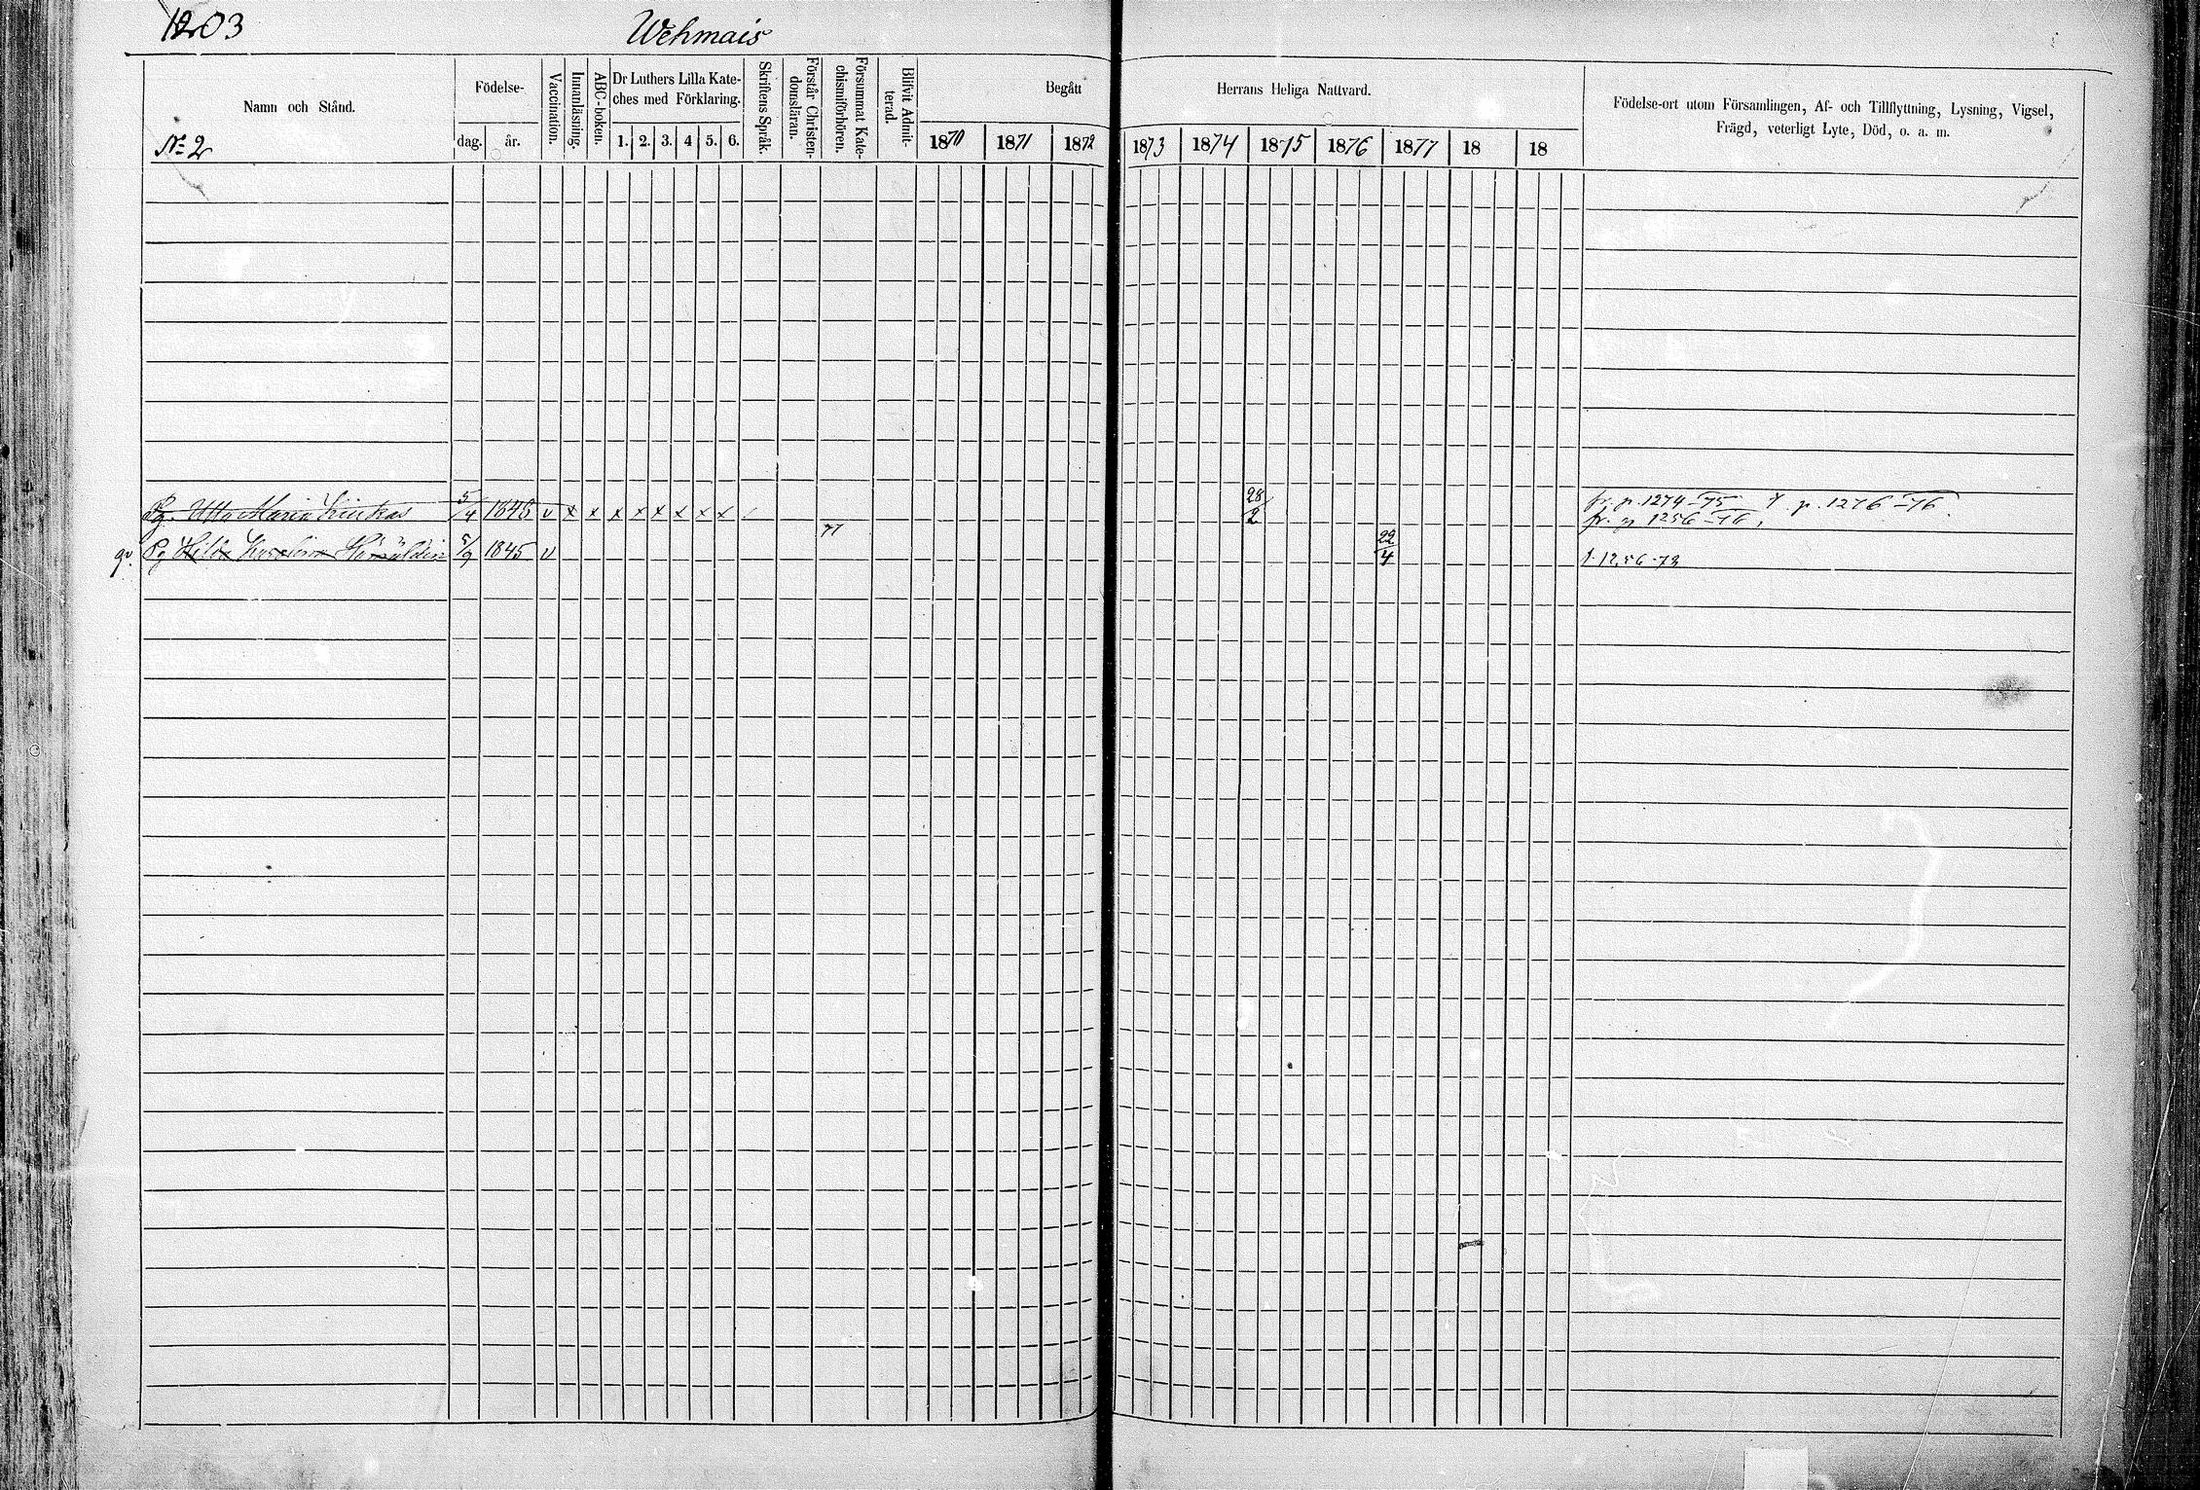 1203
Wehmais
Namn och Stånd.
Födelse-
dag. år.
Vaccination.
Innanläsning.
ABC-boken.
Dr Luthers Lilla Kate-
ches med Förklaring.
1. 2. 3. 4 5. 6.
Skriftens Språk.
Förstår Christen-
domsläran.
Försummat Kate-
chismiförhören.
Blifvit Admit-
terad.
Begått Herrans Heliga Nattvard.
1870 1871 1872 1873 1874 1875 1876 1877 18 18
Födelse-ort utom Församlingen, Af- och Tillflyttning, Lysning, Vigsel,
Frägd, veterligt Lyte, Död, o. a. m.
No 2
Pg. Maria 5/4 v x x x x x x x x 28/2 fr. p. 1274-75 p. 1276-76.
fr. p 1256-76.
77
Pg Hilda Karolina 5/9 1845 v 22/4